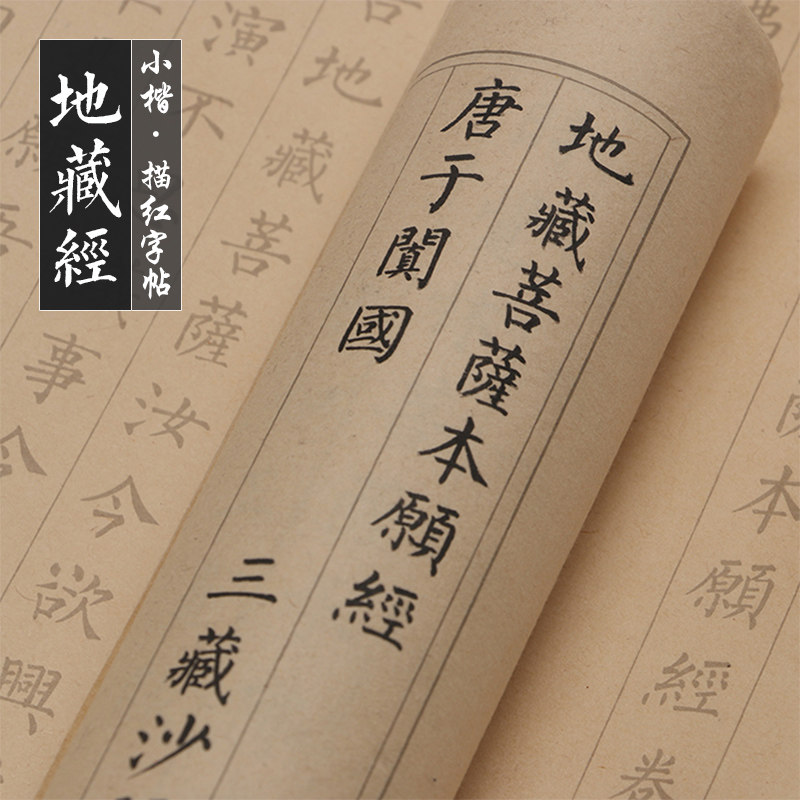 地藏經
小楷·描红字帖
地藏菩薩本願經
唐于闐國 三藏沙
本願經卷
告地藏菩薩汝今欲興
演不
事今